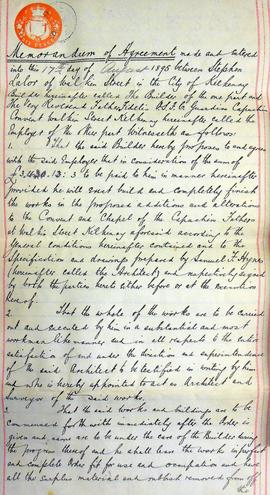 Memorandum of Agreement made and entered
into this 17th day of August 1895 between Stephen
Lalor of Walkin Street in the City of Kilkenny
Builder hereinafter called The Builder of the one part and
The Very Reverend Father Fidelis O.S.F.C. Guardian Capuchin
Convent Walkin Street Kilkenny hereinafter called the
Employer of the other part Witnesseth as follows:
1. That the said Builder hereby proposes to and agrees
with the said Employer that in consideration of the sum of
£3430:13:3 to be paid to him in manner hereinafter
provided he will erect build and completely finish
the works in the proposed additions and alterations
to the Convent and Chapel of the Capuchin Fathers
at Walkin Street Kilkenny aforesaid according to the
general conditions hereinafter contained and to the
Specification and drawings prepared by Samuel F. Hynes
(hereinafter called the Architect) and respectively signed
by both the parties hereto either before or at the execution
hereof.
2. That the whole of the works are to be carried
out and executed by him in a substantial and most
workmanlike manner and in all respects to the entire
satisfaction of and under the direction and superintendence
of the said Architect to be testified in writing by him
and who is hereby appointed to act as Architect and
surveyor of the said works.
3. That the said works and buildings are to be
commenced forthwith immediately after the Order is
given and same are to be under the care of the Builder during
the progress thereof and he shall leave the works in perfect
and complete Order fit for use and occupation and have
all the surplus material and rubbish removed from off
the